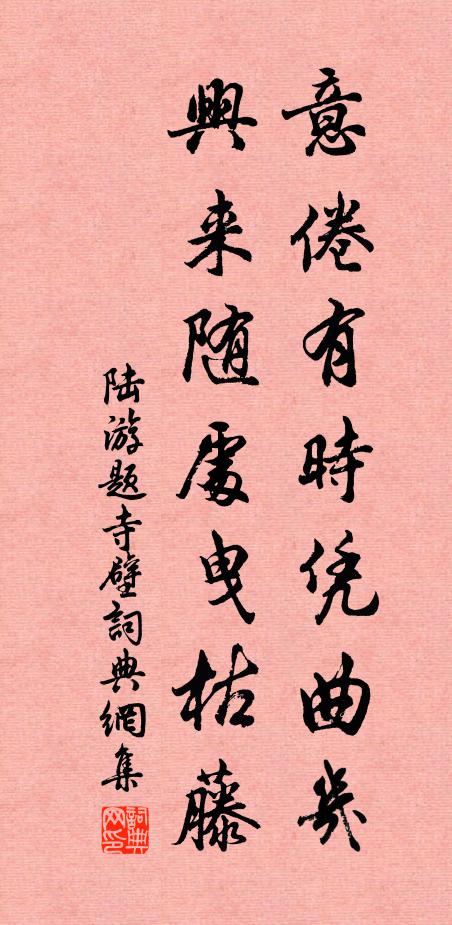 意倦有時凭曲幾
興来随處曳枯藤
陆游题寺壁詞典網集
詞典网印